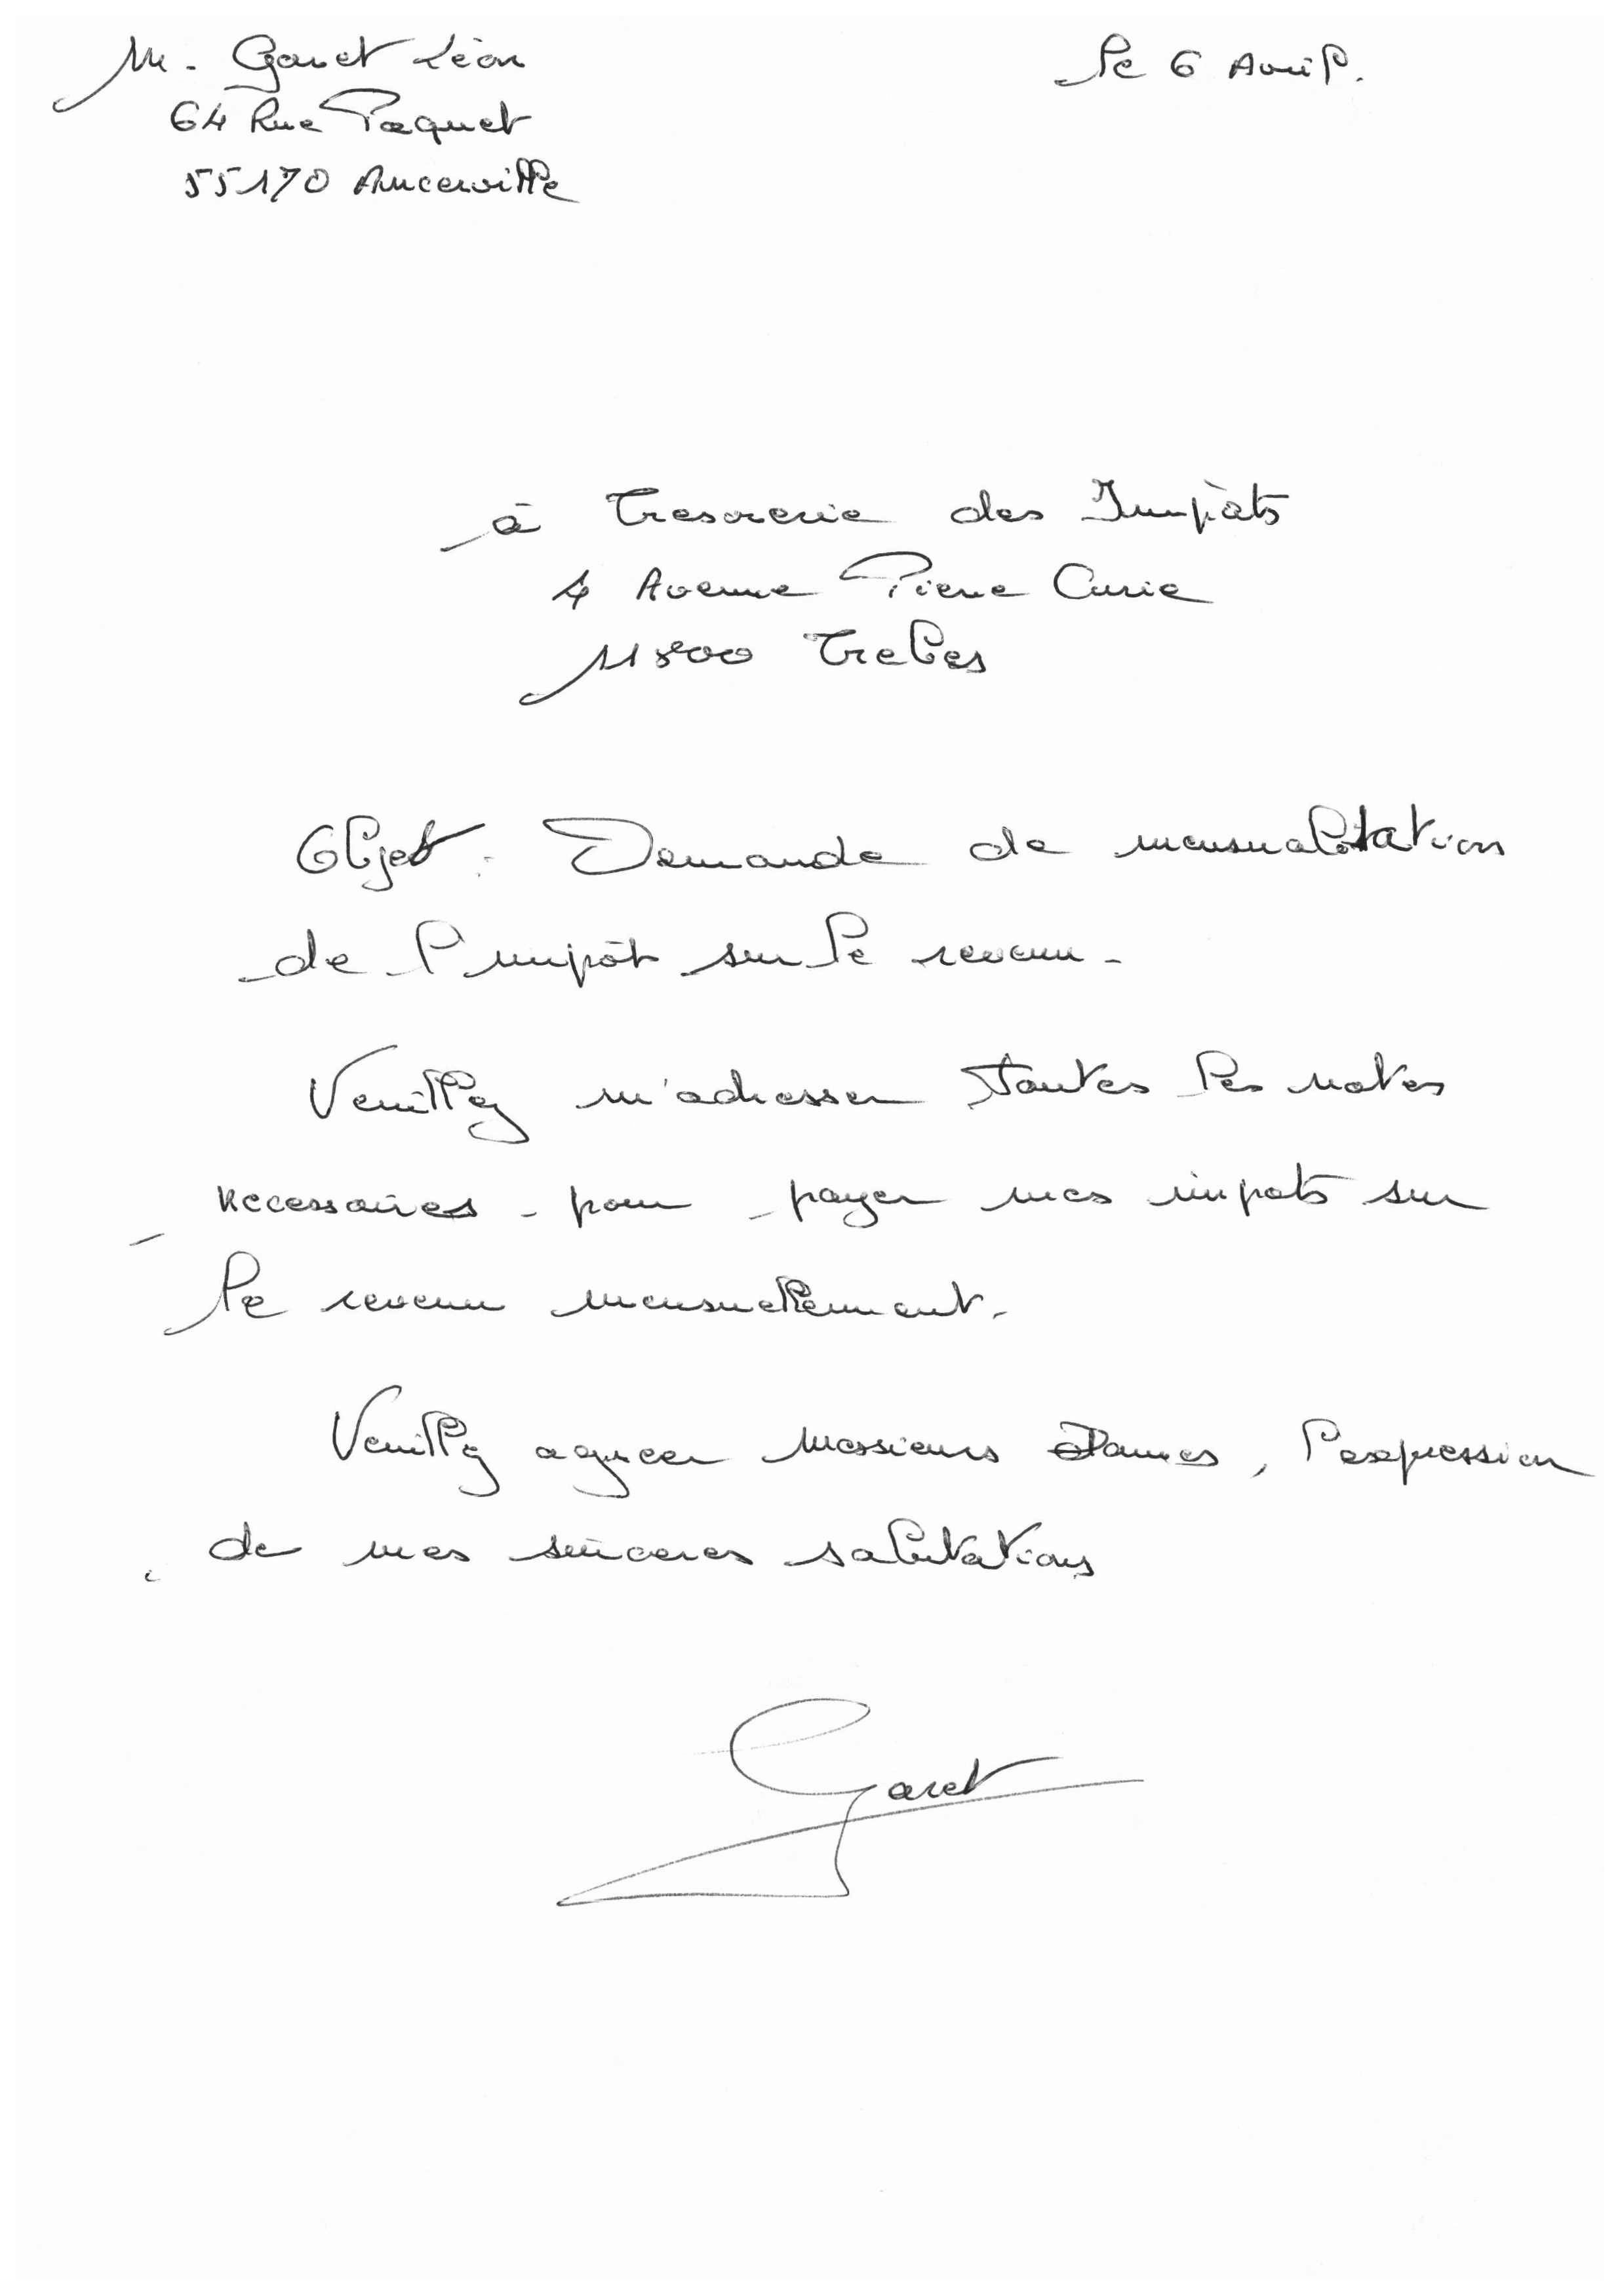 M. Garet Léon
Le 6 Avril.
64 Rue Paquet
55170 Ancerville
à Tresorerie des Impôts
4 Avenue Pierre Curie
11800 Trebes
Objet : Demande de mensualitation
de l'impôt sur le revenu.
Veuillez m'adresser toutes les notes
necessaires pour payer mes impots sur
le revenu mensuellement.
Veuillez agreer Messieurs Dames, l'expression
de mes sinceres salutations
Garet